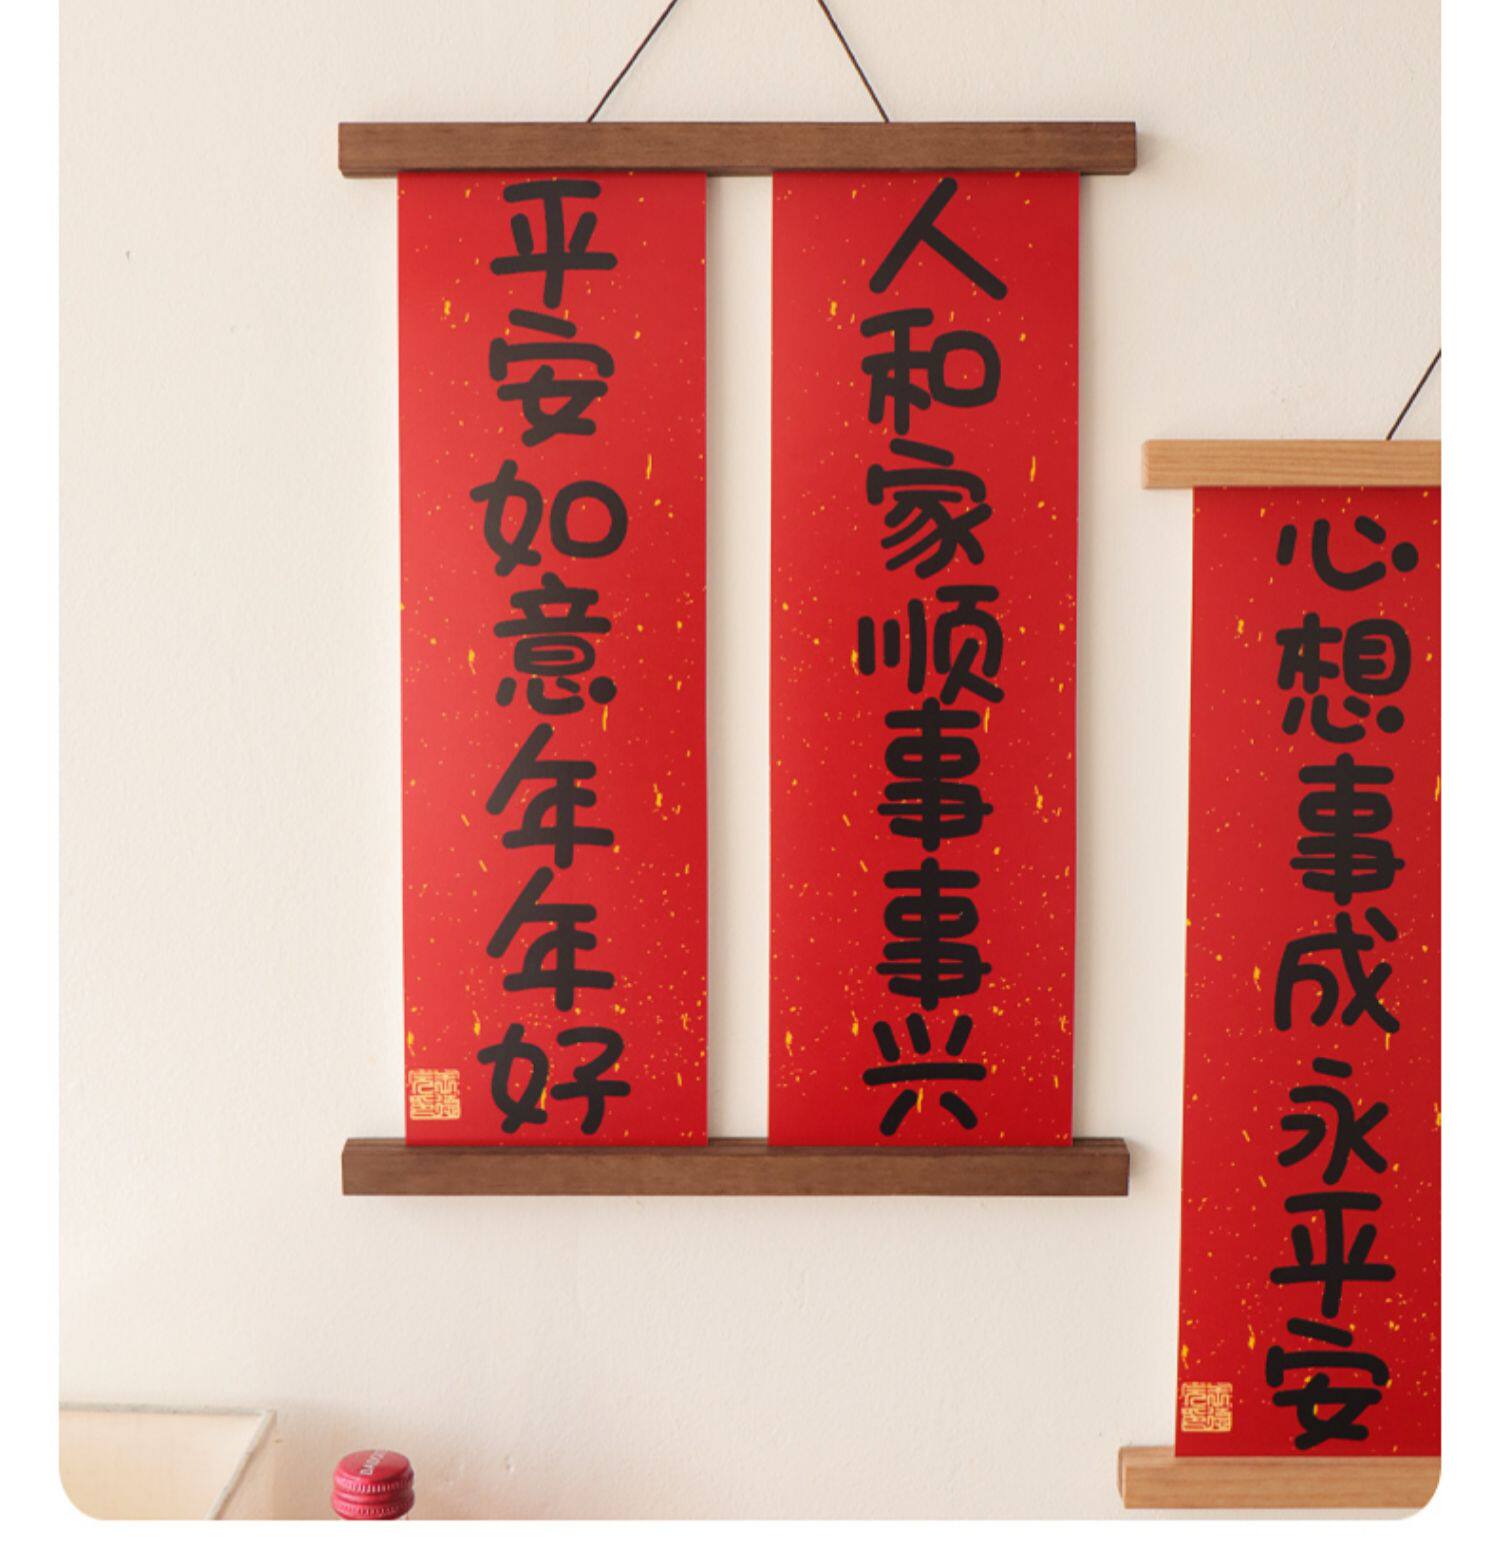 人和家顺事事兴
平安如意年年好
心想事成永平安